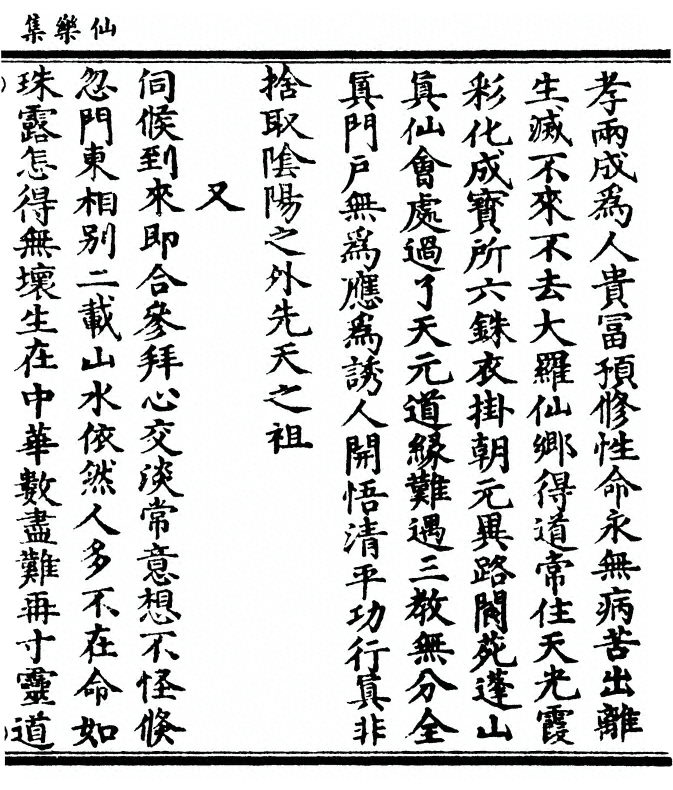 仙樂集
孝兩成爲人貴冨預修性命永無病苦出離
生滅不來不去大羅仙鄉得道常住天光霞
彩化成寶所六銖衣掛朝元異路閬苑蓬山
眞仙會處過了天元道緣難遇三教無分全
眞門戶無爲應爲誘人開悟清平功行眞非
捨取陰陽之外先天之祖
又
伺候到來即合參拜心交淡常意想不怪倐
忽門東相别二載山水依然人多不在命如
珠露怎得無壞生在中華數盡難再寸靈道